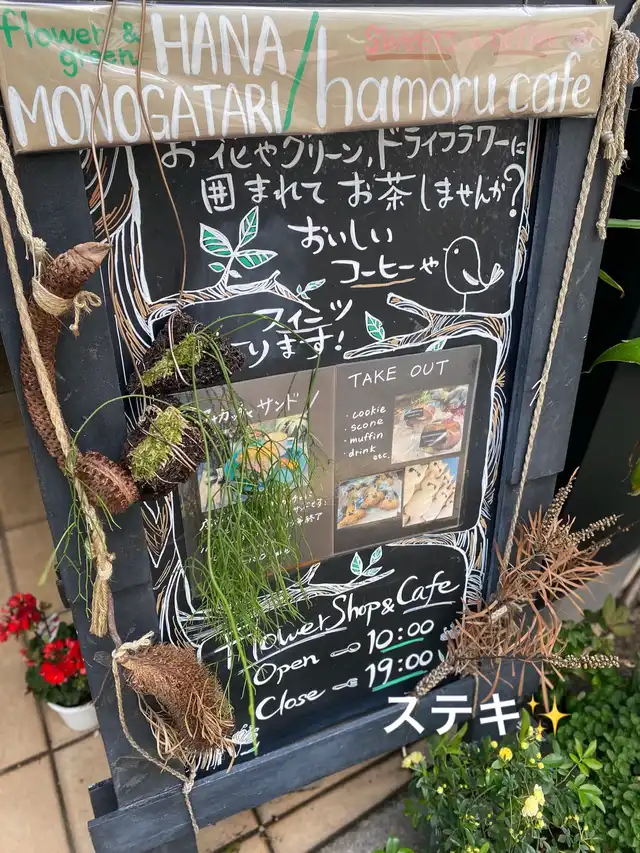 flower &
green
HANA
MONOGATARI
/
hamoru cafe
お花やグリーン,ドライフラワーに
囲まれて お茶しませんか?
おいしい
コーヒーや
ります!
サンド
TAKE OUT
・cookie
・scone
・muffin
・drink
etc.
終了
Flower Shop & Cafe
Open 10:00
Close 19:00
ステキ✨